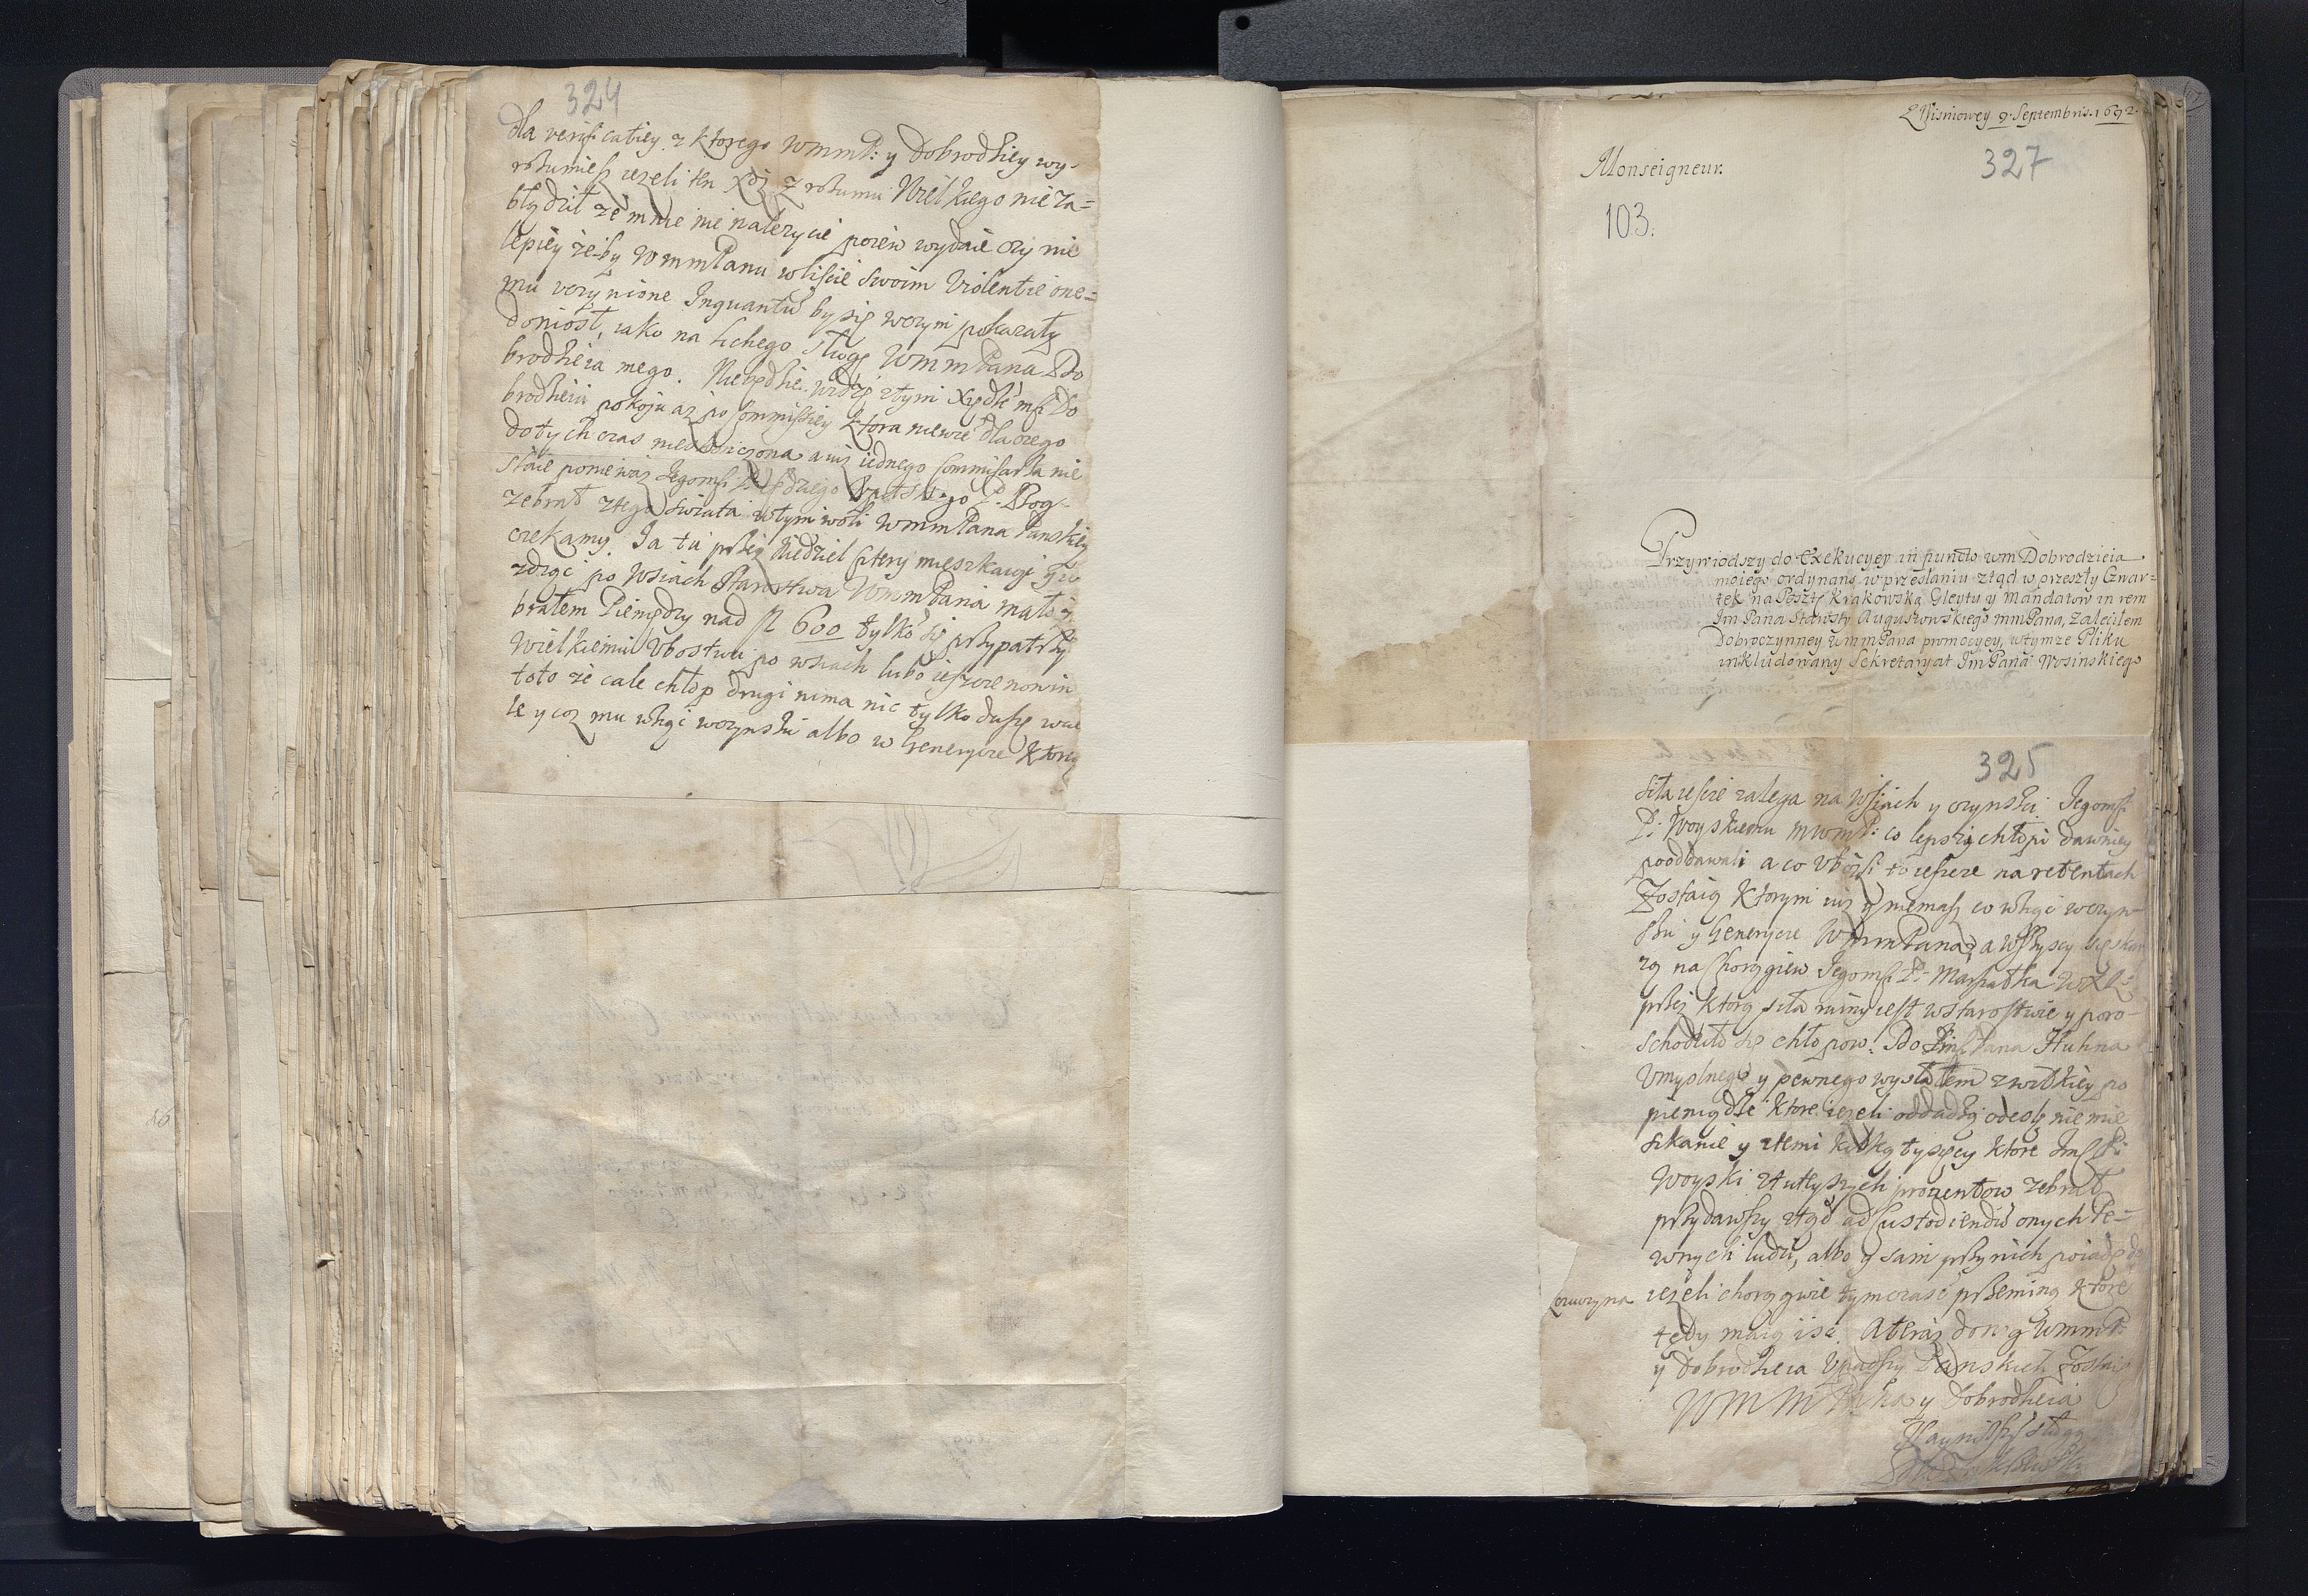 324
dla verificatiey z ktorego WmmP: y Dobrodziey wy-
rozumiesz iezeli ten Xdz z rozumu Wielkiego nie za=
błądził ze mnie nie nalezycie pozew wydaie czy nie
lepiey zeby WmmPanu w liscie swoim Violentie one=
mu uczynione Inquantu by się w czym pokazały
doniosł, iako na lichego sługę WmmPana Do
brodzieia mego. Niebędzie widzę z tym Xiędzem Do
brodzieiu pokoju az po Commissiey ktora niewie dla czego
do tych czas nie a iuz iednego Commisarza nie
staie poniewaz Jegomsci P. Bog
zebrał z tego swiata w tym woli WmmPana Panskiey
czekamy. Ja tu przez Niedziel cztery mieszkaiąc y
zdząc po Wsiach Starostwa WmmPana mało
brałem Pieniędzy nad fl 600 tylko się przypatrzy
Wielkiemu Vbostwu po wsiach lubo ieszcze non in
toto ze cale chłop drugi nima nic tylko duszę w
le y coz mu wziąc w czynszu albo w Generyce ktorey
86
Z Wisniowey 9. Septembris. 1692.
Monseigneur.
327
103.
Przywiodszy do Exekucyey in puncto wm Dobrodzieia
moiego ordynans, w przesłaniu ztąd w przeszły Czwar=
tek na Posztę Krakowską Gleytu y Mandatow in rem
Jm Pana Starosty Augustowskiego mmPana, Zaleciłem
Dobroczynney WmmPana promocyey, w tymze Pliku
inkludowany Sekretaryat Jm Pana Wosinskiego
325
siła iescze zalega na Wsiach y czynszu. Jegomsci
P: Woyskiemu mwmP: co lepszy chłopi dawniey
pooddawali a co Vbozsi to iescze na retentach
Zostaią ktorym iuz y niemasz co wziąc w czyn-
szu y Generyce WmmPana, a wszyscy się skar
zą na Chorągiew Jegomsci P: Marszałka WXL:
przez ktorą siła ruiny iest w starostwie y poro-
schodziło się chłopow. Do Jmsci Pana Huhna
Vmyslnego y pewnego wysłałem z po
pieniądze ktore iezeli oddadzą odeslę nie mie
szkanie y z temi kilką tysięcy ktore Jmsc P:
Woyski z tuteyszych prowentow zebrał
przydawszy ztąd ad Custodiendu onych Pe=
wnych ludzi, albo y sam przy nich poiadę do
Lewczyna iezeli chorągwie tym czase przeminą ktore
tędy maią isc. A teraz do nog WmmP:
y Dobrodzieia Vpadszy Panskich Zostaię
WMM Pana y Dobrodzieia
Naynizszy sługa